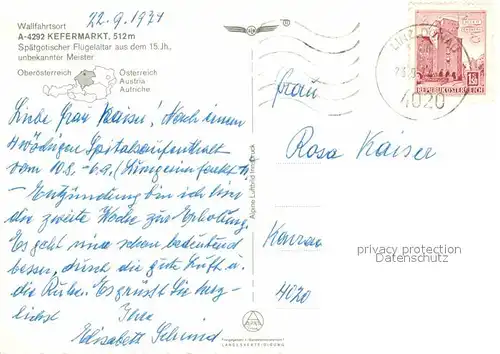 22.9.1971
Wallfahrtsort
A-4292 KEFERMARKT, 512m
Spätgotischer Flügelaltar aus dem 15.Jh.,
unbekannter Meister
Oberösterreich
Österreich
Austria
Autriche
Liebe Frau Kaiser! Nach einem
4 wöchigen Spitalsaufenthalt
vom 10.8.-6.9. (Lungeninfarkt u.
- Entzündung bin ich hier
die zweite Woche zur Erholung.
Es geht mir schon bedeutend
besser, durch die gute Luft u.
die Ruhe. Es grüsst Sie herz-
lichst Ihre
Elisabeth Schmid
Alpine Luftbild Innsbruck
LINZ DONAU
4020
REPUBLIK ÖSTERREICH
Frau
Rosa Kaiser
4020
privacy protection
watermark
LANDESVERTEIDIGUNG